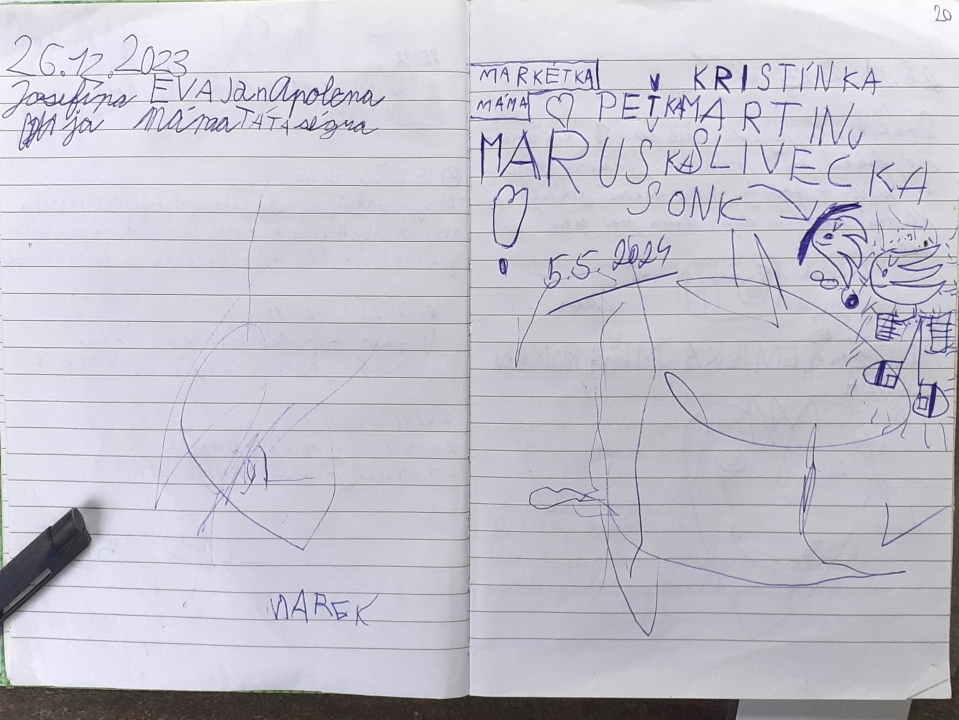 26.12.2023
Josefína EVA Jan Apolena
ja máma TATA ségra
MAREK
20
MARKÉTKA KRISTÍNKA
MÁMA PEŤKA MARTIN
MARUŠKA SLIVEČKA
SONK
5.5.2024